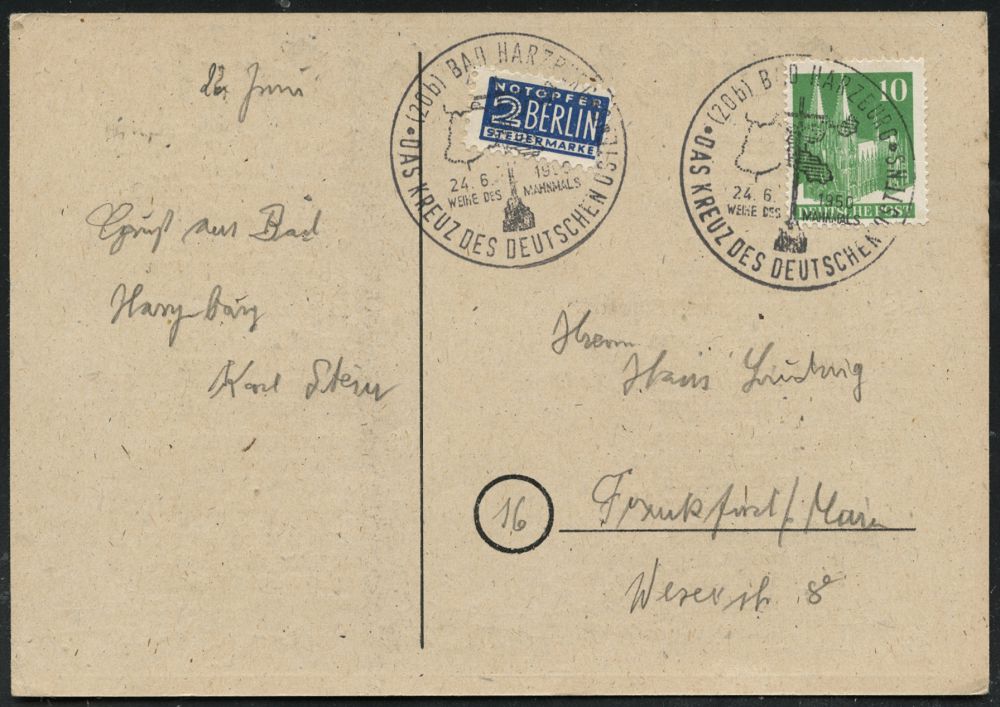 Juni
Gruß aus Bad
Harzburg
Karl Stern
(20b) BAD HARZBURG
NOTOPFER
2 BERLIN
STEUERMARKE
24. 6. 1950
WEIHE DES MAHNMALS
• DAS KREUZ DES DEUTSCHEN OSTENS •
(20b) BAD HARZBURG
10
DEUTSCHE POST
24. 6. 1950
WEIHE DES MAHNMALS
• DAS KREUZ DES DEUTSCHEN OSTENS •
Herrn
Hans Ludwig
16
Frankfurt/Main
Weserstr 8